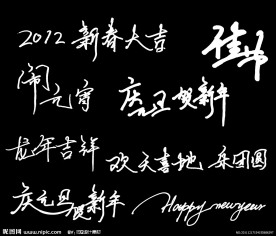 2012 新春大吉
佳节
闹元宵
庆元旦 贺新年
龙年吉祥
欢天喜地
乐团圆
庆元旦 贺新年
Happy new year
昵图网
www.nipic.com